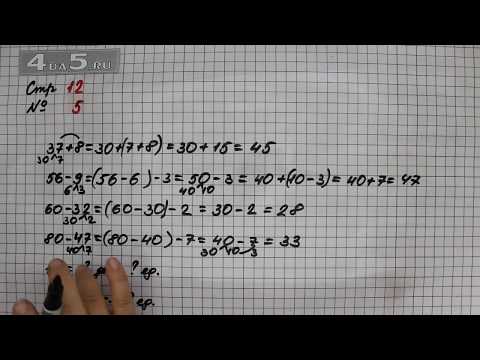 4DA5.RU
Стр 12
№ 5
37+8=30+(7+8)=30+15=45
30 7
56-9=(56-6)-3=50-3=40+(10-3)=40+7=47
6 3 40 10
60-32=(60-30)-2=30-2=28
30 2
80-47=(80-40)-7=40-7=33
40 7 30 10 3
? ? ед.
? ед.